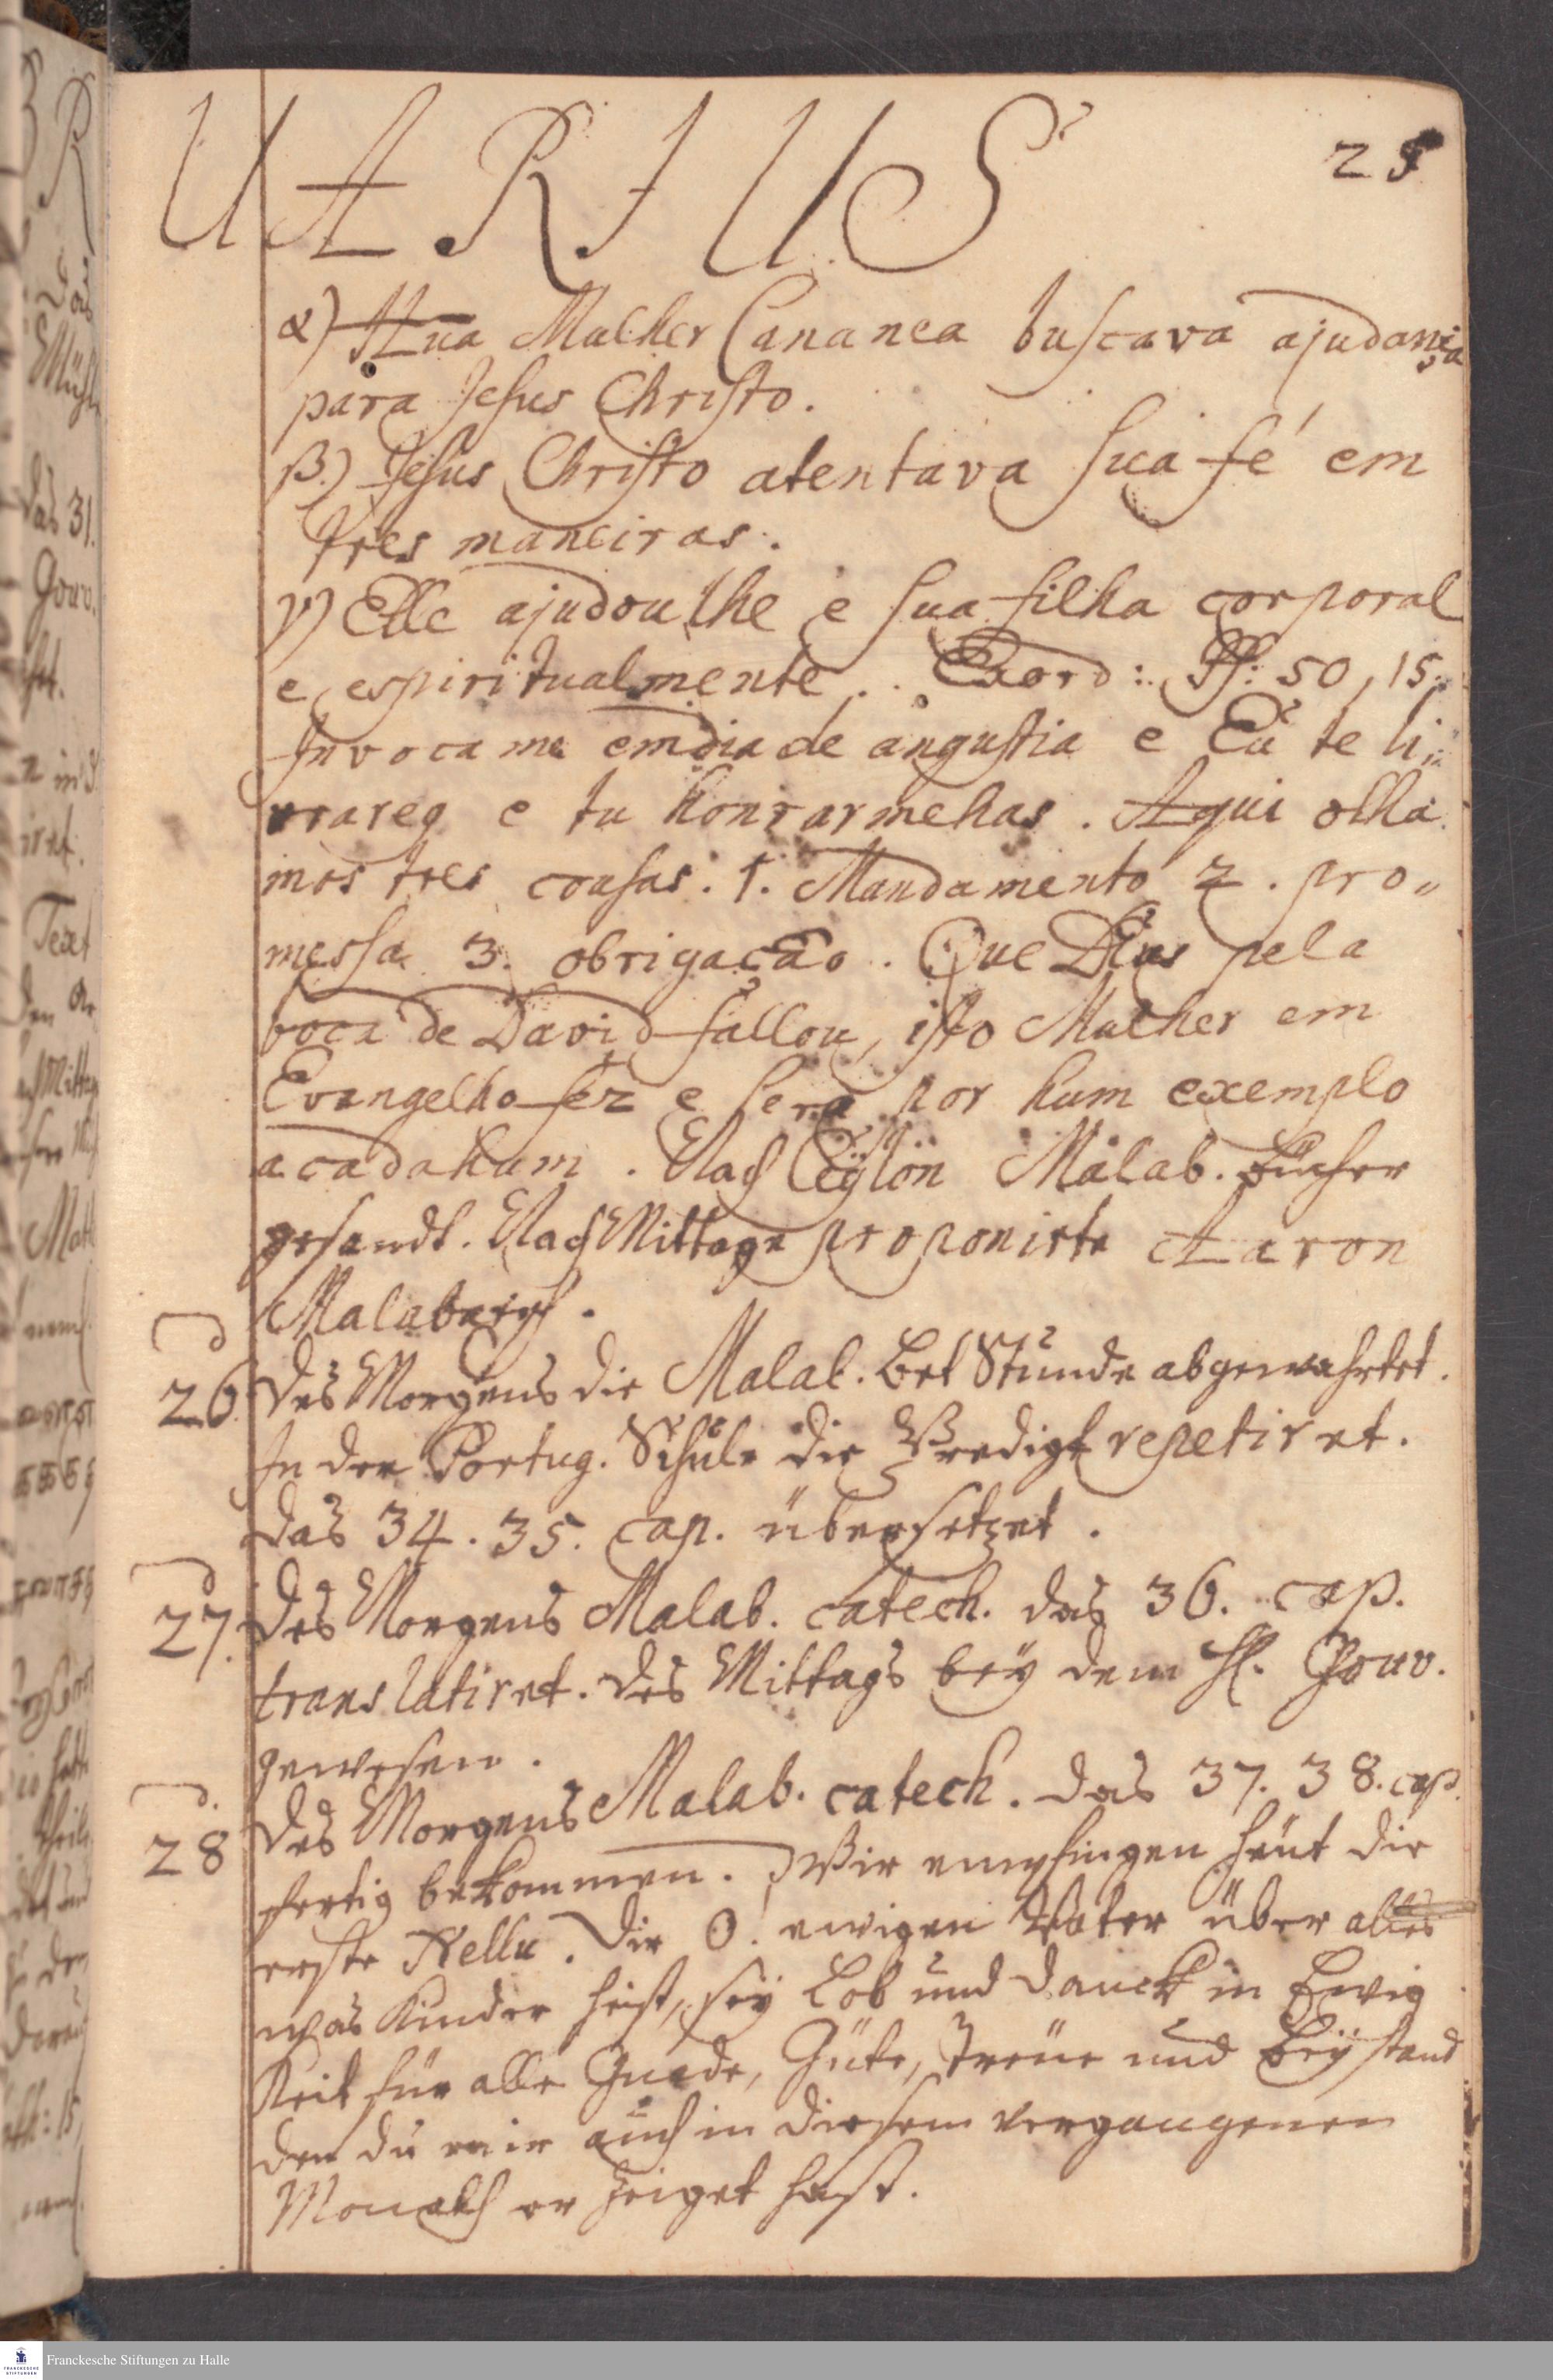 UARIUS
25
α) Hua Mulher Cananea buscava ajudança
para Jesus Christo.
β.) Jesus Christo atentava sua fé em
tres maneiras.
γ) Elle ajudou lhe e sua filha corporal
e espiritualmente. Exord: Ps: 50, 15.
Invoca me em dia de angustia e Eu te li„
vrarey e tu honrarmehas. Aqui olha
mos tres cousas. 1. Mandamento 2. pro„
messa 3. obrigação. Que Deus pela
boca de David fallou, isto Mulher em
Evangelho fez e sera por hum exemplo
a cadahum. Nach Ceÿlon Malab. Bücher
gesandt. Nach Mittage proponirte Aaron
Malabarisch.
26. Des Morgens die Malab. Bet Stunde abgewahrtet.
In der Portug. Schule die Predigt repetiret.
Das 34. 35. cap. übersetzet.
27. Des Morgens Malab. catech. das 36. cap.
translatiret. Des Mittags beÿ dem H. Gouv.
gewesen.
28 Des Morgens Malab. catech. das 37. 38. cap.
fertig bekommen. Wir empfingen heut die
erste Nellu. Dir O. ewigen Vater über alles
was Kinder heist, seÿ Lob und Danck in Ewig
keit für alle Gnade, Güte, Treue und Beÿstand
den du mir auch in diesem vergangenen
Monath er zeiget hast.
Franckesche Stiftungen zu Halle